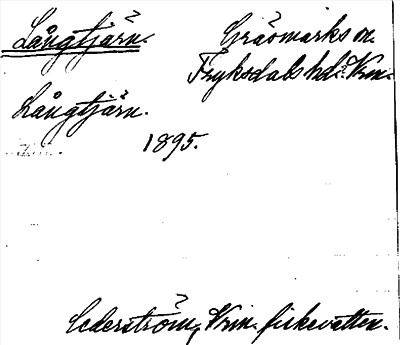 Långtjärn. Gräsmarks sn.
Fryksdals hd. Vrm.
Långtjärn.
1895.
Cederström, Vrm. fiskevatten.